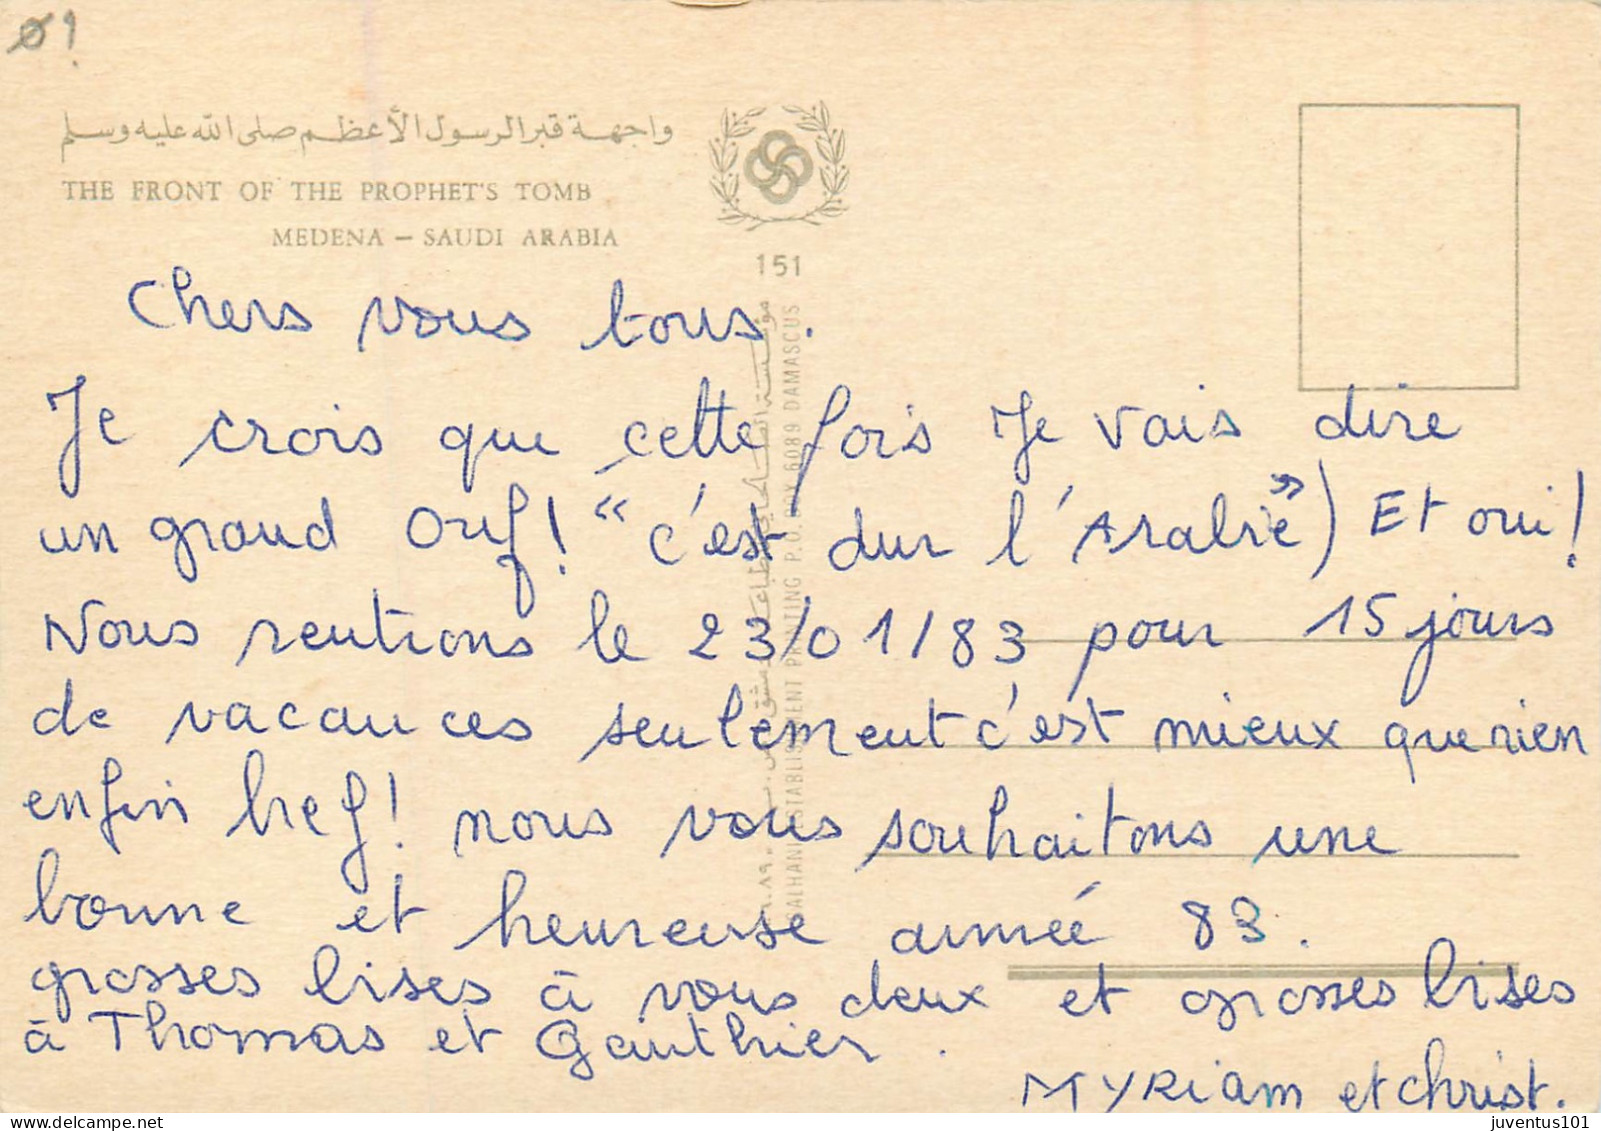 01
واجهة قبر الرسول الأعظم صلى الله عليه وسلم
THE FRONT OF THE PROPHET'S TOMB
MEDENA – SAUDI ARABIA
151
SALHANI ESTABLISHMENT PRINTING P.O. BOX 6089 DAMASCUS
Chers vous tous.
Je crois que cette fois Je vais dire
un grand Ouf! “c'est dur l'Arabie”) Et oui!
Nous rentrons le 23/01/83 pour 15 jours
de vacances seulement c'est mieux que rien
enfin bref! nous vous souhaitons une
bonne et heureuse année 83.
grosses bises à vous deux et grosses bises
à Thomas et Gauthier.
MYRiam et christ.
juventus101